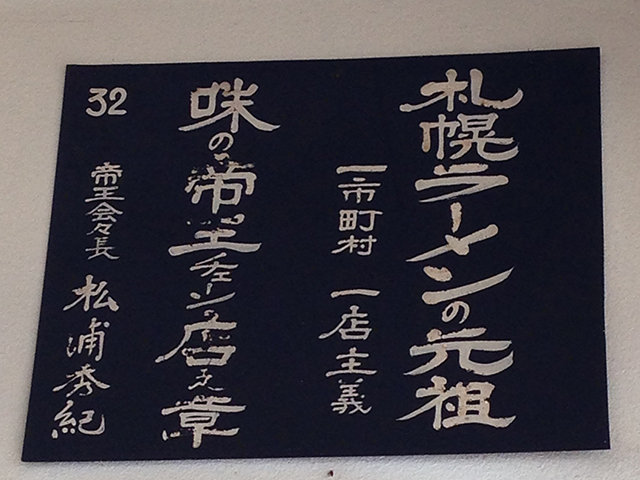 札幌ラーメンの元祖
一市町村 一店主義
味の帝王チェーン店之章
32
帝王会々長 松浦秀紀